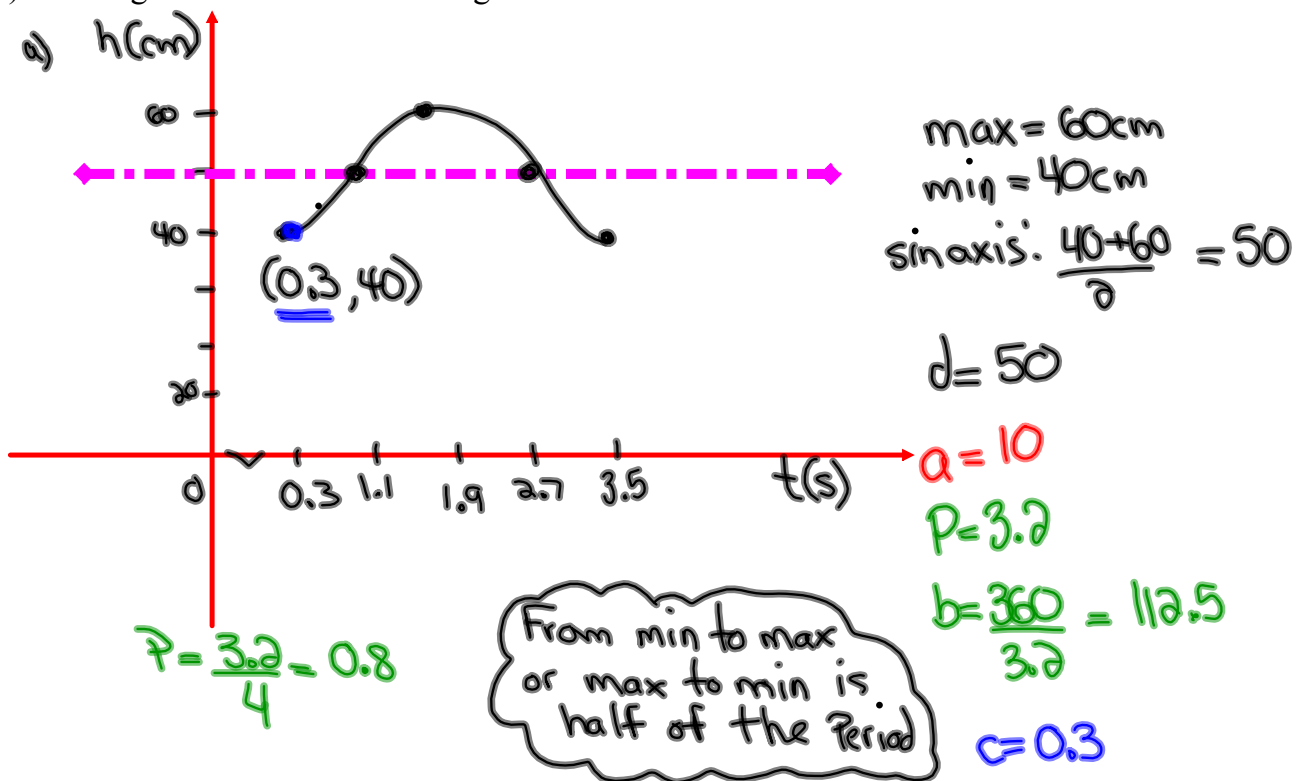 a) h(cm)
60
40
(0.3, 40)
20
0 0.3 1.1 1.9 2.7 3.5 t(s)
max = 60cm
min = 40cm
sinaxis: 40+60/2 = 50
d = 50
a = 10
P = 3.2
b = 360/3.2 = 112.5
c = 0.3
P = 3.2/4 = 0.8
From min to max
or max to min is
half of the Period